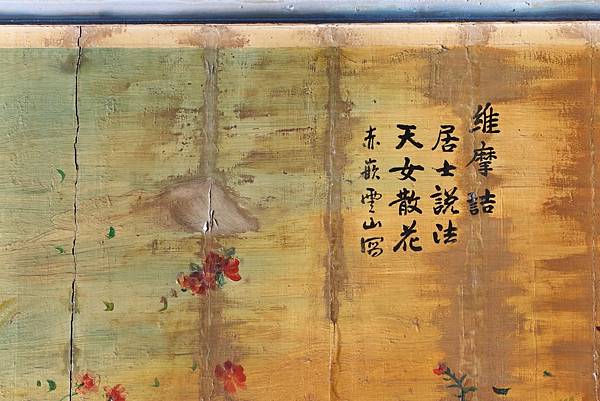 維摩詰
居士說法
天女散花
赤嵌雲山寫